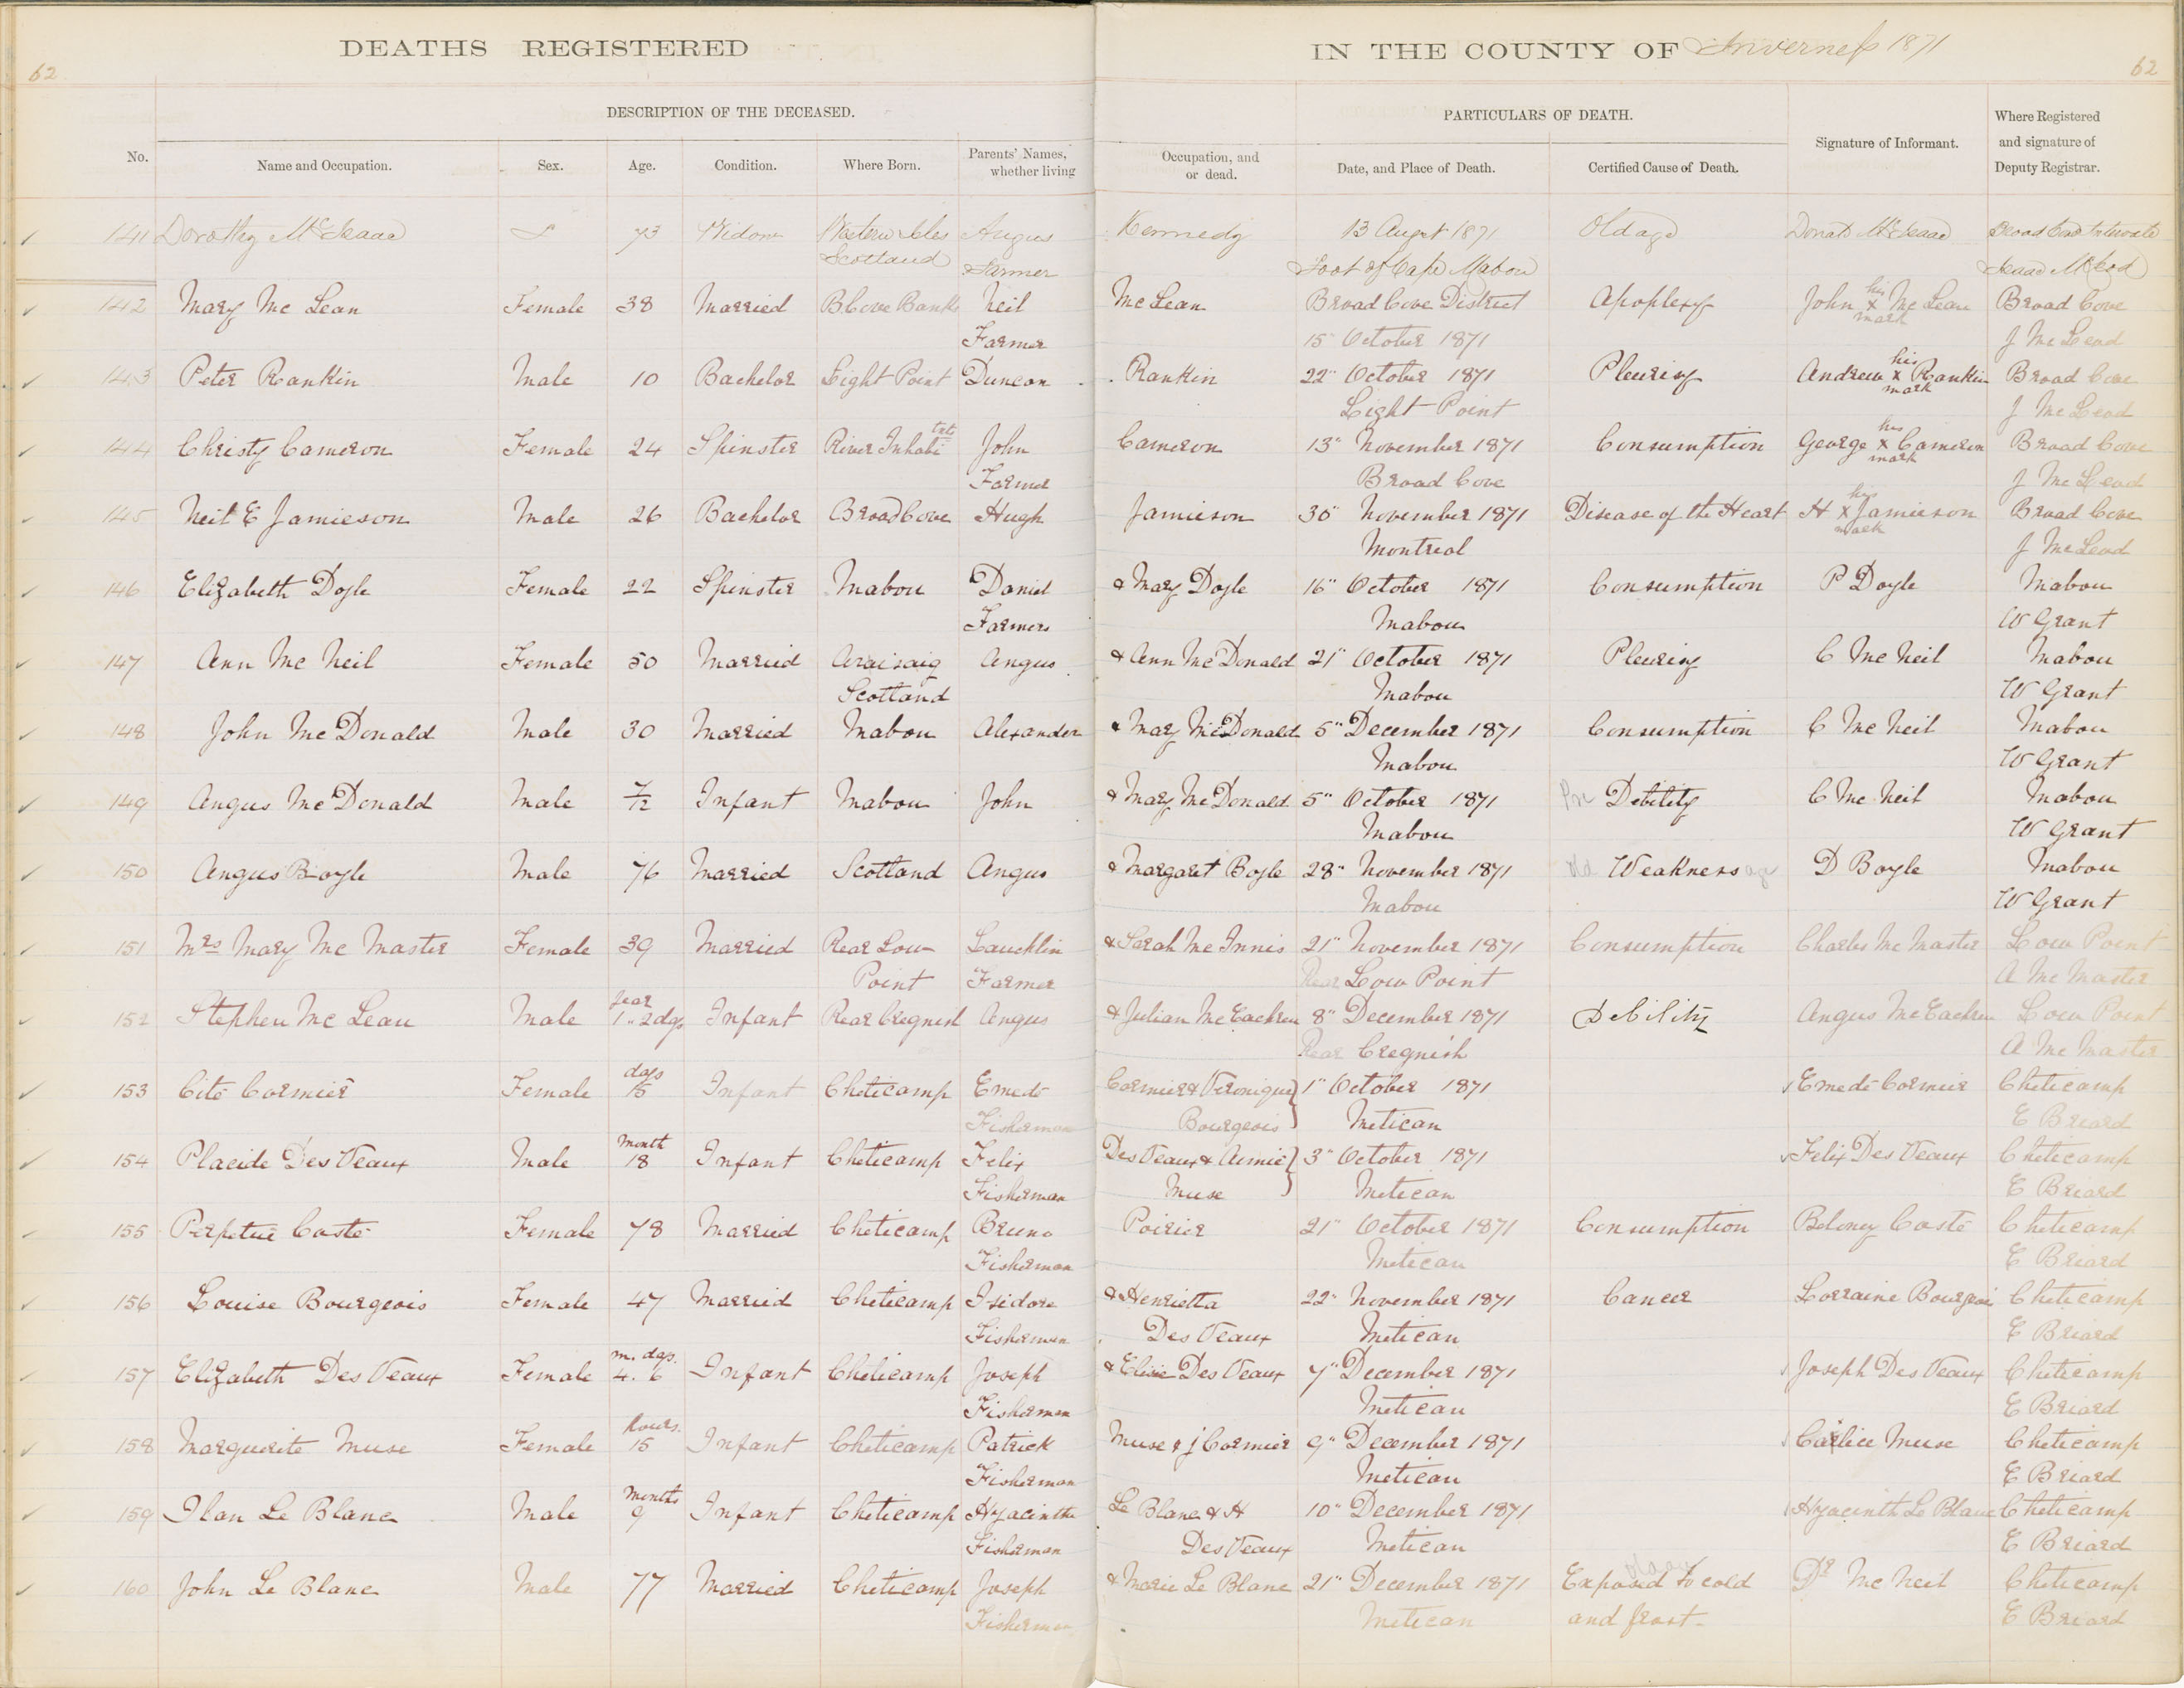 DEATHS REGISTERED IN THE COUNTY OF Inverness 1871
62 62
DESCRIPTION OF THE DECEASED. PARTICULARS OF DEATH.
No. Name and Occupation. Sex. Age. Condition. Where Born. Parents' Names, whether living Occupation, and or dead. Date, and Place of Death. Certified Cause of Death. Signature of Informant. Where Registered and signature of Deputy Registrar.
141 Dorothy McIsaac 73 Widow Western Isles Angus Kennedy 13 August 1871 Old age Donald McIsaac Broad Cove Intervale
Scotland Farmer Foot of Cape Mabou Isaac McLeod
142 Mary Mc Lean Female 38 Married B. Cove Banks Neil Mc Lean Broad Cove District Apoplexy John his x mark Mc Lean Broad Cove
Farmer 15" October 1871 J Mc Leod
143 Peter Rankin Male 10 Bachelor Sight Point Duncan Rankin 22" October 1871 Pleurisy Andrew his x mark Rankin Broad Cove
Sight Point J Mc Leod
144 Christy Cameron Female 24 Spinster River Inhabitnts John Cameron 13" November 1871 Consumption George his x mark Cameron Broad Cove
Farmer Broad Cove J Mc Leod
145 Neil E Jamieson Male 26 Bachelor Broad Cove Hugh Jamieson 30" November 1871 Disease of the Heart H his x mark Jamieson Broad Cove
Montreal J Mc Leod
146 Elizabeth Doyle Female 22 Spinster Mabou Daniel & Mary Doyle 16" October 1871 Consumption P Doyle Mabou
Farmers Mabou W Grant
147 Ann Mc Neil Female 50 Married Araisaig Angus & Ann Mc Donald 21" October 1871 Pleurisy C Mc Neil Mabou
Scotland Mabou W Grant
148 John Mc Donald Male 30 Married Mabou Alexander & Mary McDonald 5" December 1871 Consumption C Mc Neil Mabou
Mabou W Grant
149 Angus Mc Donald Male 7/12 Infant Mabou John & Mary Mc Donald 5" October 1871 Debility C Mc Neil Mabou
Mabou W Grant
150 Angus Boyle Male 76 Married Scotland Angus & Margaret Boyle 28" November 1871 old Weakness age D Boyle Mabou
Mabou W Grant
151 Mrs Mary Mc Master Female 39 Married Rear Low Lauchlin & Sarah Mc Innis 21" November 1871 Consumption Charles Mc Master Low Point
Point Farmer Rear Low Point A Mc Master
152 Stephen Mc Lean Male year 1 .. 2 dys Infant Rear Cregnish Angus & Julian Mc Eachren 8" December 1871 Debility Angus Mc Eachren Low Point
Rear Cregnish A Mc Master
153 Cité Cormier Female days 15 Infant Cheticamp Emedé Cormier & Véronique 1" October 1871 Emedé Cormier Cheticamp
Fisherman Bourgeois Metican E Briard
154 Placide DesVeaux Male Month 18 Infant Cheticamp Felix DesVeaux & Annie 3" October 1871 Felix Des Veaux Cheticamp
Fisherman Muse Metican E Briard
155 Perpetué Casté Female 78 Married Cheticamp Bruno Poirier 21" October 1871 Consumption Beloney Casté Cheticamp
Fisherman Metican E Briard
156 Louise Bourgeois Female 47 Married Cheticamp Isidore & Henrietta 22" November 1871 Cancer Lorraine Bourgeois Cheticamp
Fisherman Des Veaux Metican E Briard
157 Elizabeth Des Veaux Female m. dys. 4. 6 Infant Cheticamp Joseph & Elisie Des Veaux 7" December 1871 Joseph Des Veaux Cheticamp
Fisherman Metican E Briard
158 Marguerite Muse Female hours. 15 Infant Cheticamp Patrick Muse & J Cormier 9" December 1871 Muse Cheticamp
Fisherman Metican E Briard
159 Ilan Le Blanc Male Months 9 Infant Cheticamp Hyacinthe Le Blanc & H 10" December 1871 Hyacinth Le Blanc Cheticamp
Fisherman DesVeaux Metican E Briard
160 John Le Blanc Male 77 Married Cheticamp Joseph & Marie Le Blanc 21" December 1871 Exposed to cold Dr Mc Neil Cheticamp
Fisherman Metican and frost. E Briard